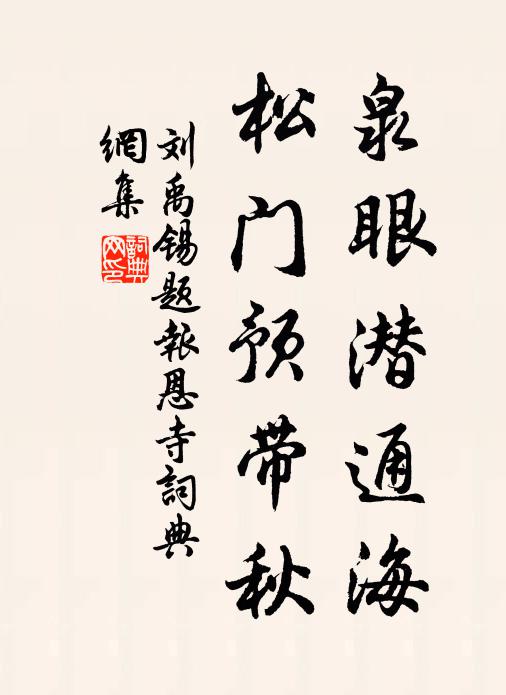 泉眼潜通海
松门预带秋
刘禹锡题报恩寺詞典
網集
詞典
网印